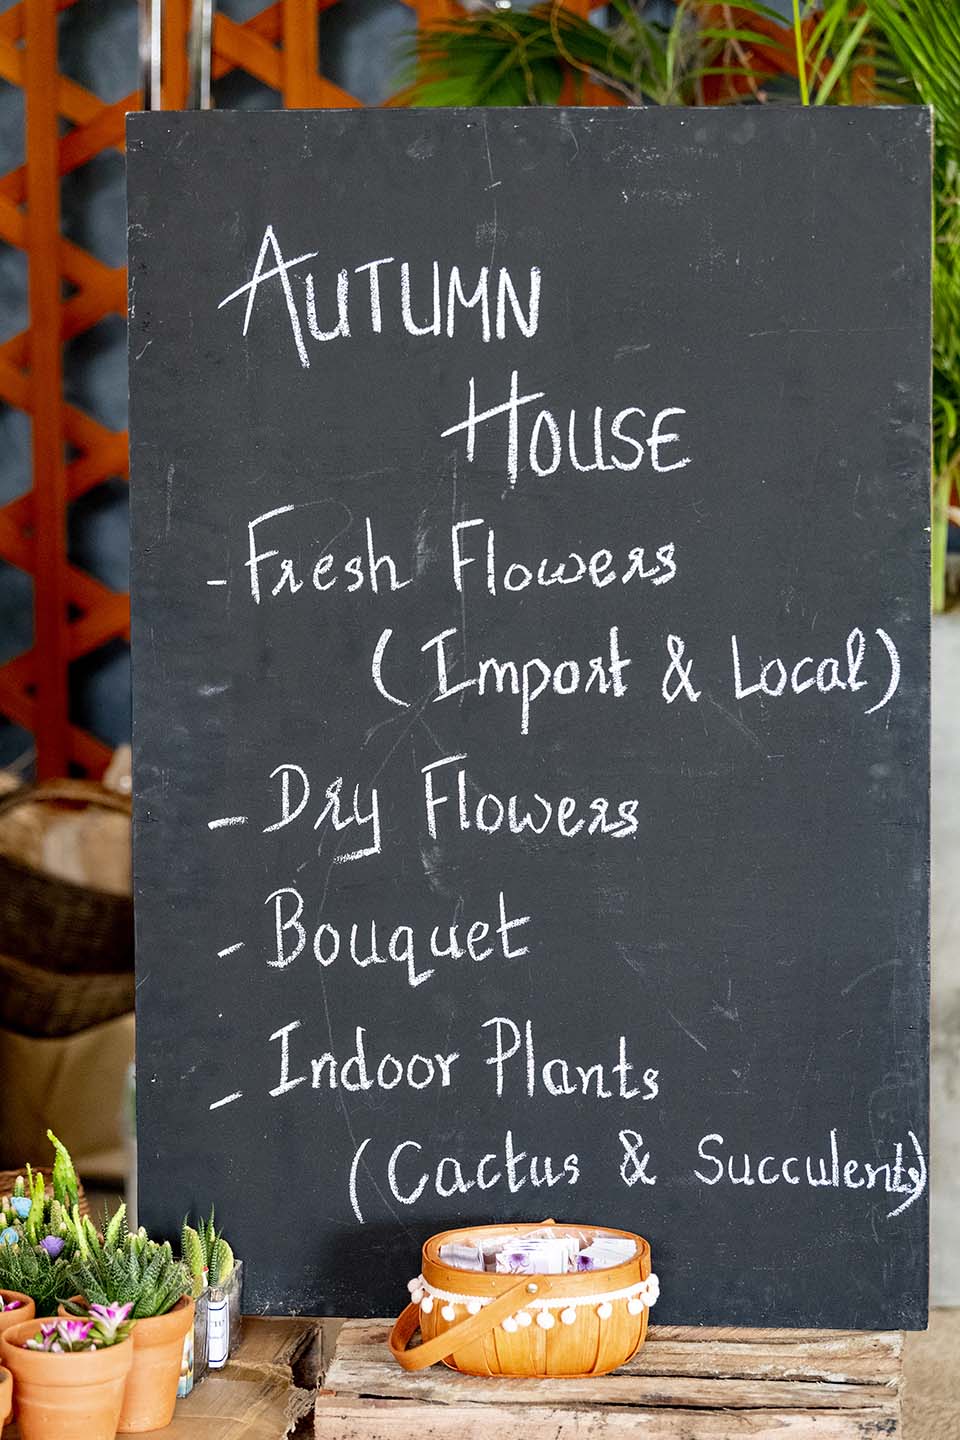 AUTUMN
HOUSE
- Fresh Flowers
(Import & Local)
- Dry Flowers
- Bouquet
- Indoor Plants
(Cactus & Succulents)